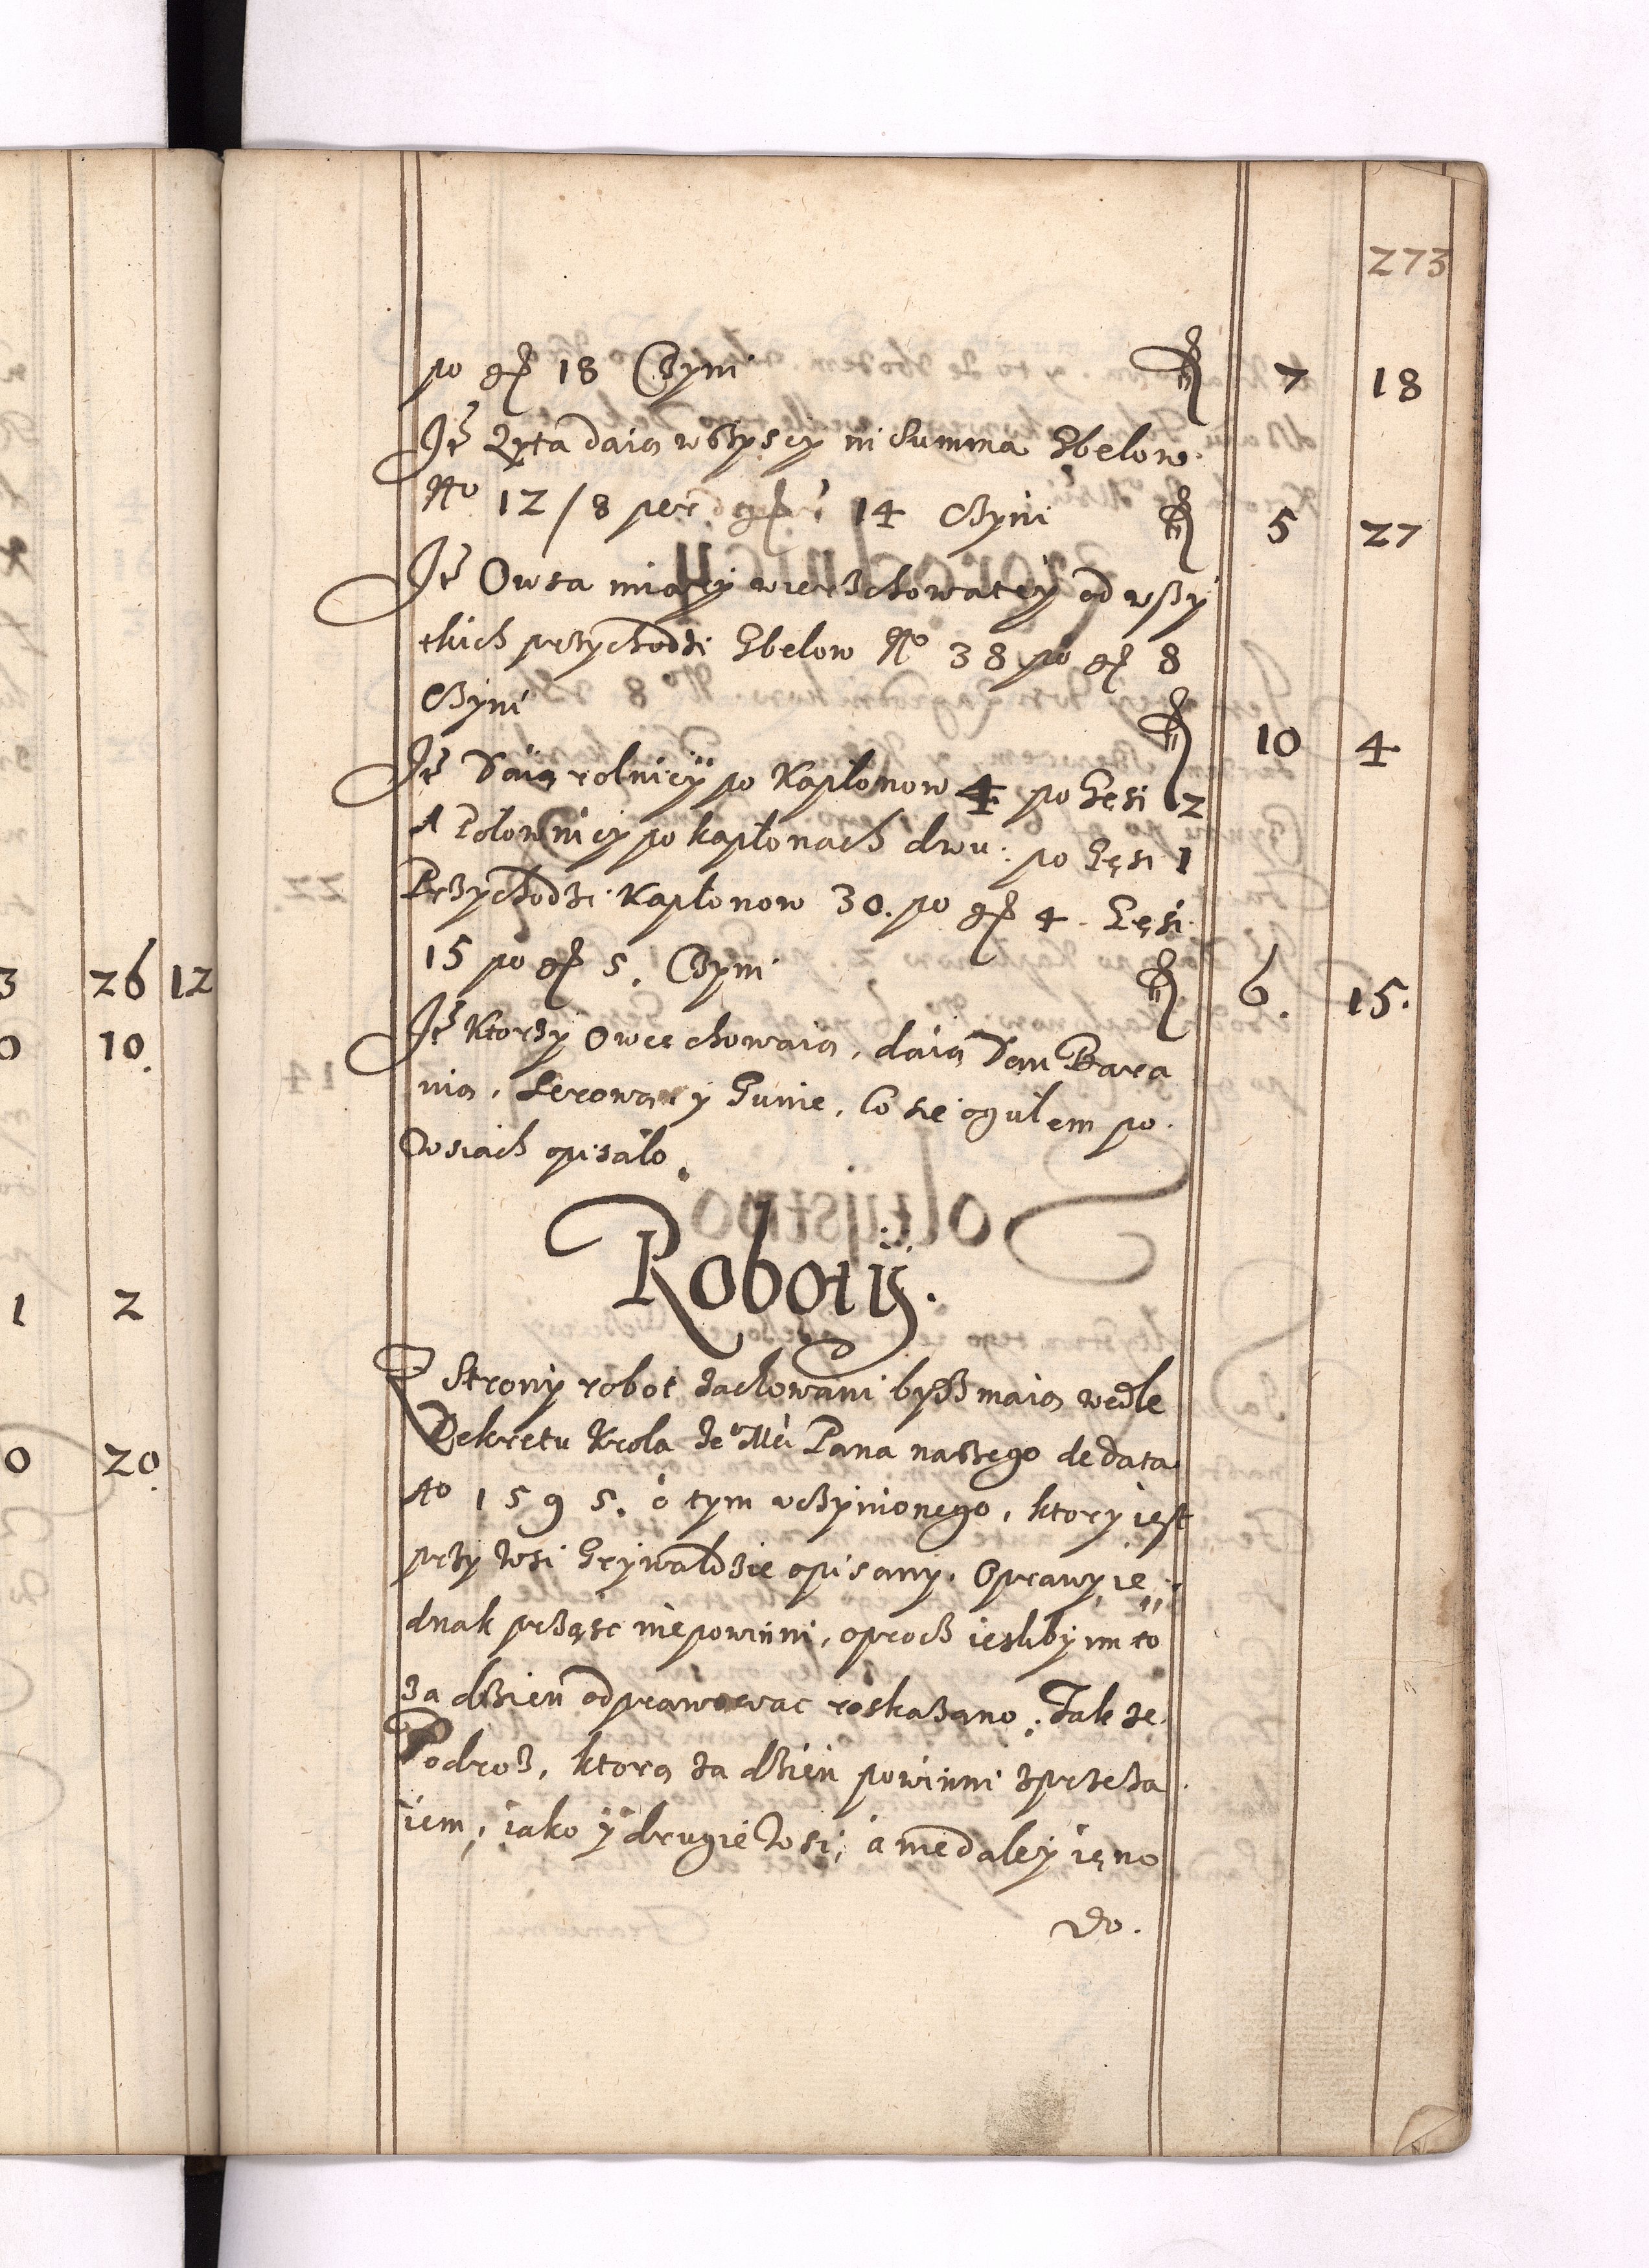 273
po gß 18 Czyni f 7 18
Ité Zyta daią wßyscy in summa Gbelow
No 12/8 per gß 14 Czyni f 5 27
Ité Owsa miary wierzchowatey od wßy
tkich przychodzi Gbelow No 38 po gß 8
Czyni f 10 4
Ité Daią rolnicy po Kapłonow 4 po Gęsi 2
A Połownicy po kapłonach dwu: po Gęsi 1
Przychodzi Kapłonow 30. po gß 4. Gęsi
15 po gß 5. Czyni f 6. 15.
Ité Ktorzy Owce chowaią, daią Dan Bara
nią, Serową y Gunie, Co się ogulem po
Wsiach opisało.
Roboty.
Z Strony robot zachowani bydź maią wedle
Dekretu Krola Je° Mći Pana naszego de data
Ao 1595. o tym uczynionego, ktory iest
przy Wsi Grywałdzie opisany. Oprawy ie„
dnak prząść niepowinni, oprocz iesliby im to
za dzien odprawowac roskazano. Tak ze
Podroz, ktorą za dzien powinni zprzeza
iem, iako y drugie Wsi, a niedaley ięno
do.
3 26 12
0 10.
1 2
0 20.